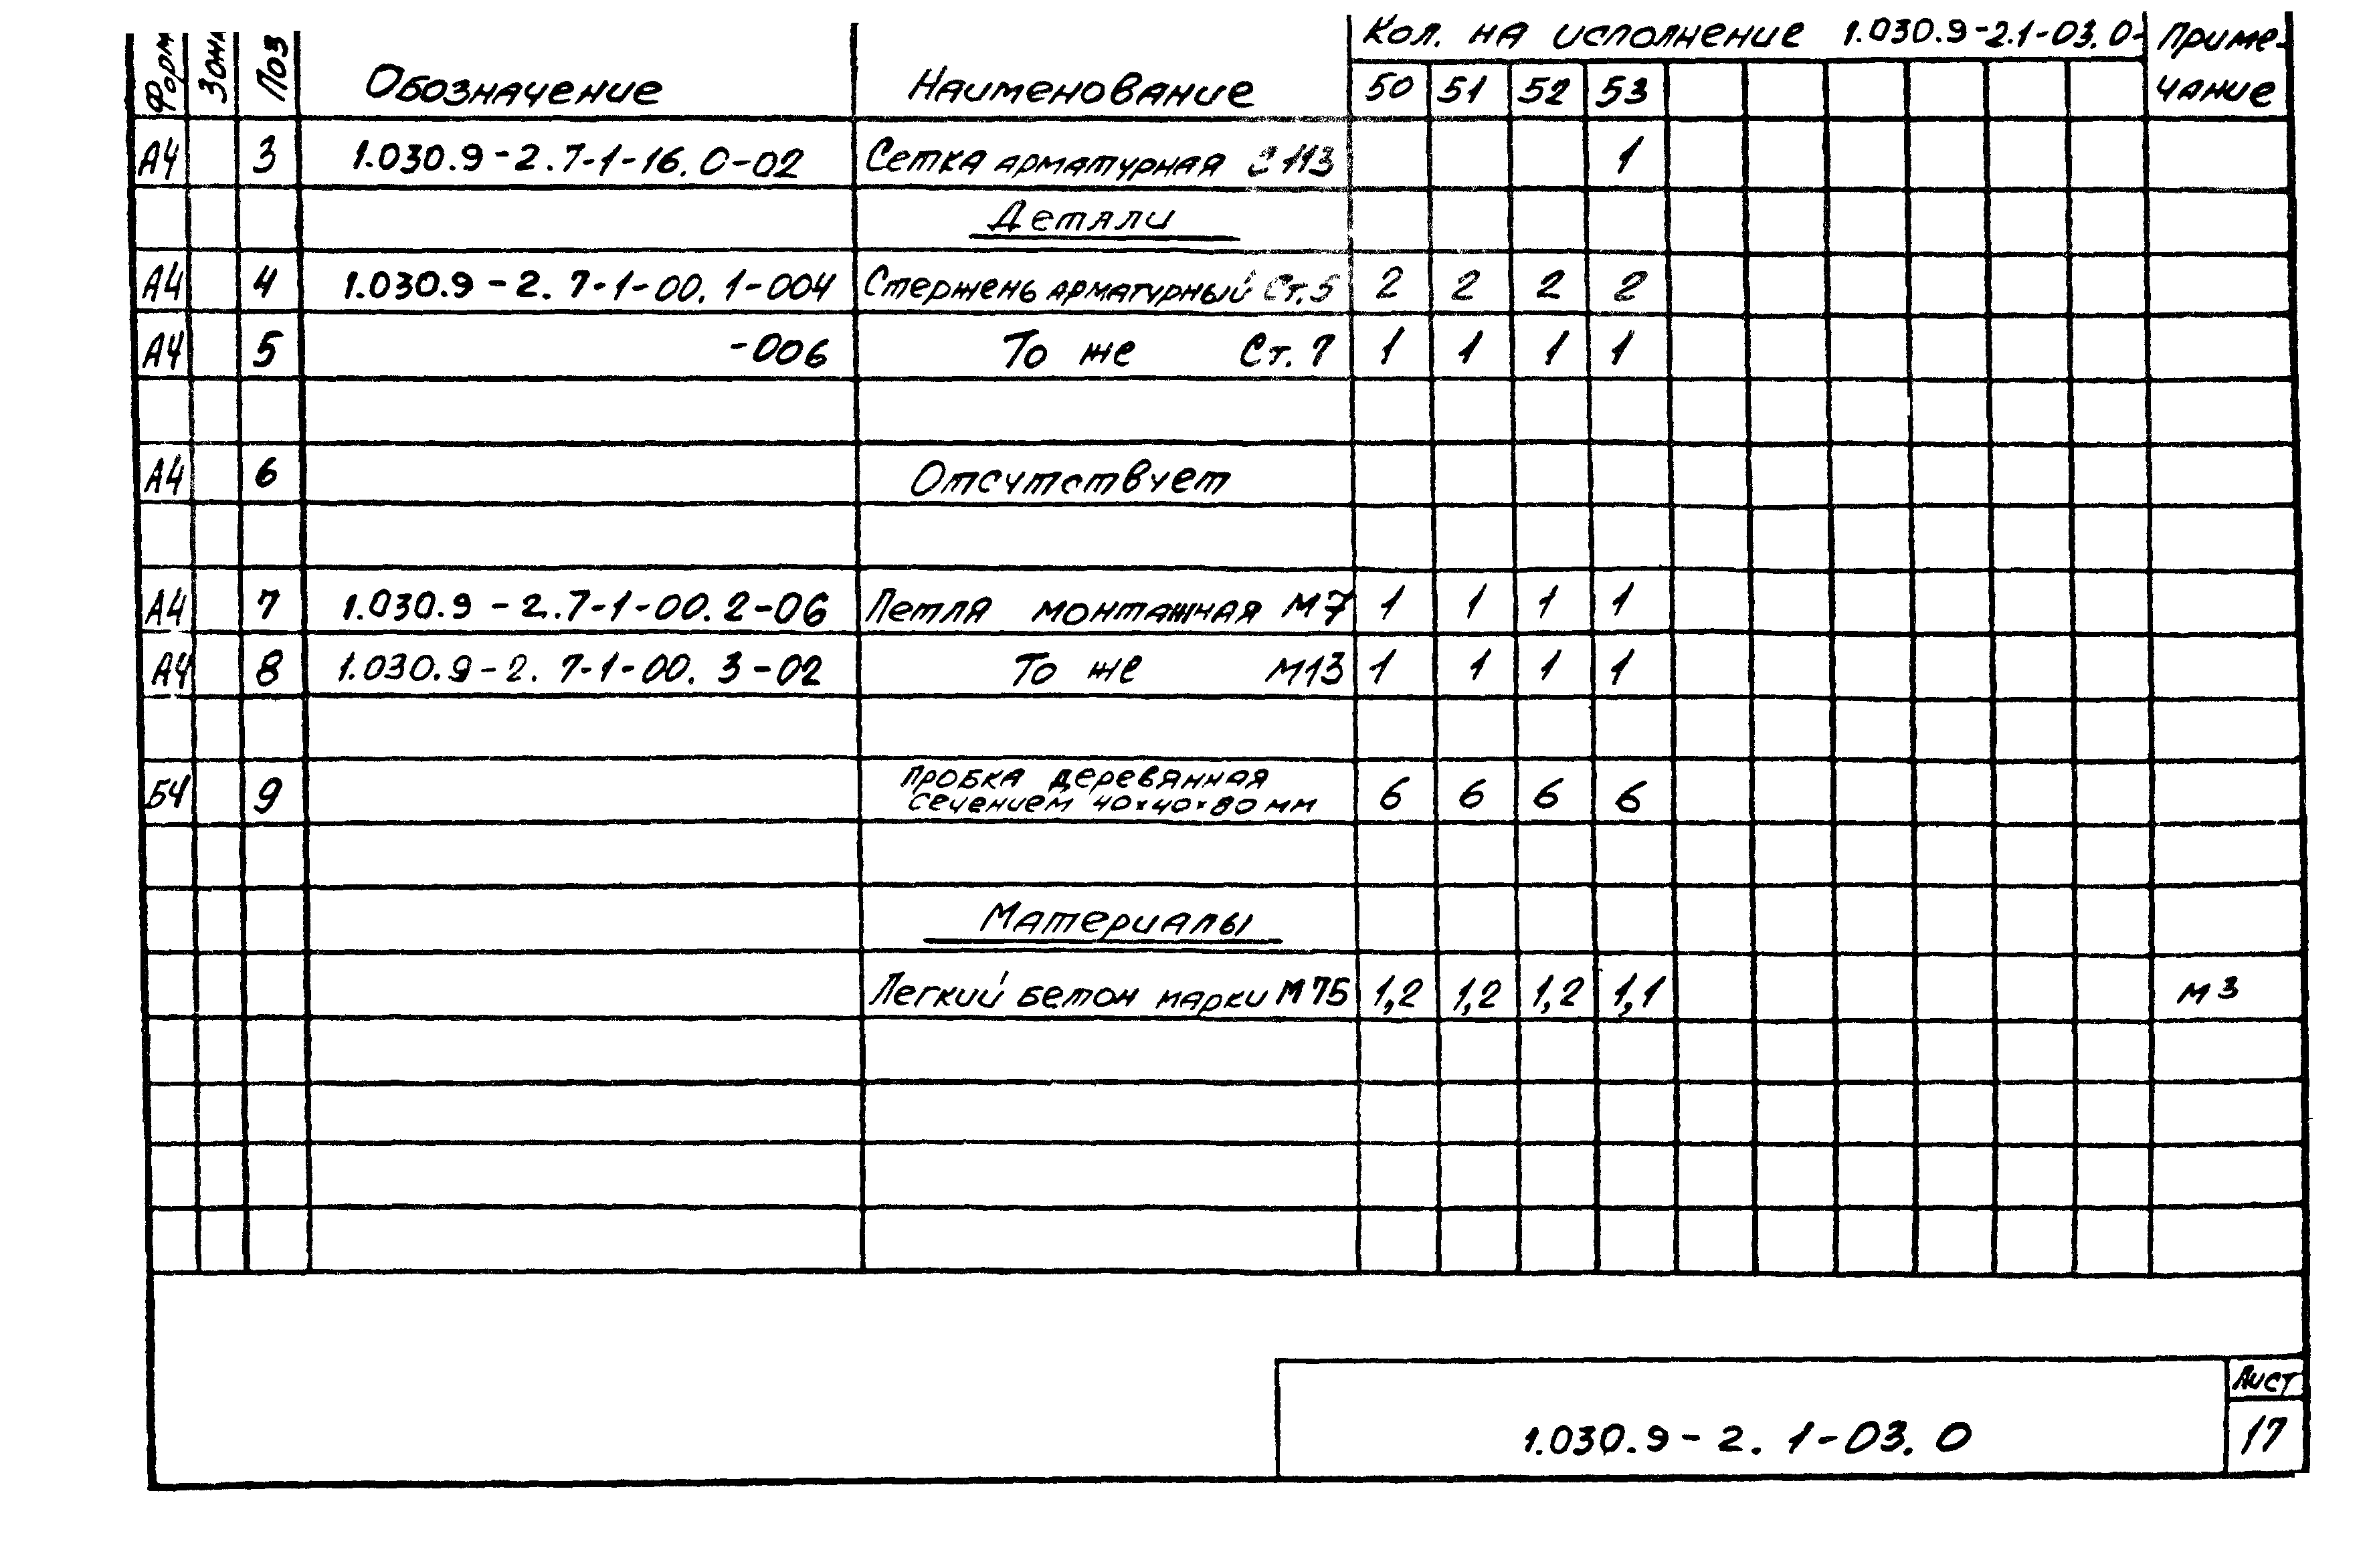 Форм Зона Поз Обозначение Наименование Кол. на исполнение 1.030.9-2.1-03.0- Приме-
50 51 52 53 чание
А4 3 1.030.9-2.7-1-16.0-02 Сетка арматурная С113 1
Детали
А4 4 1.030.9-2.7-1-00.1-004 Стержень арматурный Ст.5 2 2 2 2
А4 5 -006 То же Ст.7 1 1 1 1
А4 6 Отсутствует
А4 7 1.030.9-2.7-1-00.2-06 Петля монтажная М7 1 1 1 1
А4 8 1.030.9-2.7-1-00.3-02 То же М13 1 1 1 1
Б4 9 Пробка деревянная
сечением 40×40×80 мм 6 6 6 6
Материалы
Легкий бетон марки М75 1,2 1,2 1,2 1,1 м3
Лист
1.030.9-2.1-03.0 17